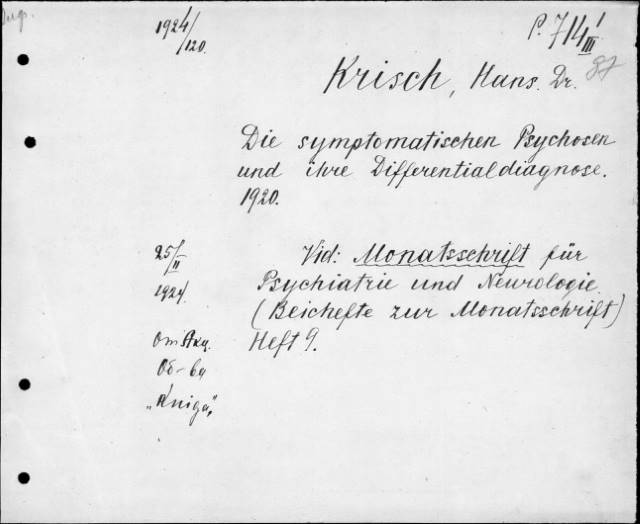 1924/120.
P. 714 1/III
87
Krisch, Hans. Dr.
Die symptomatischen Psychosen
und ihre Differentialdiagnose.
1920.
25/II
1924.
Vid: Monatsschrift für
Psychiatrie und Neurologie.
(Beichefte zur Monatsschrift)
Heft 9.
От Акц.
Об-ва
„Kniga”,